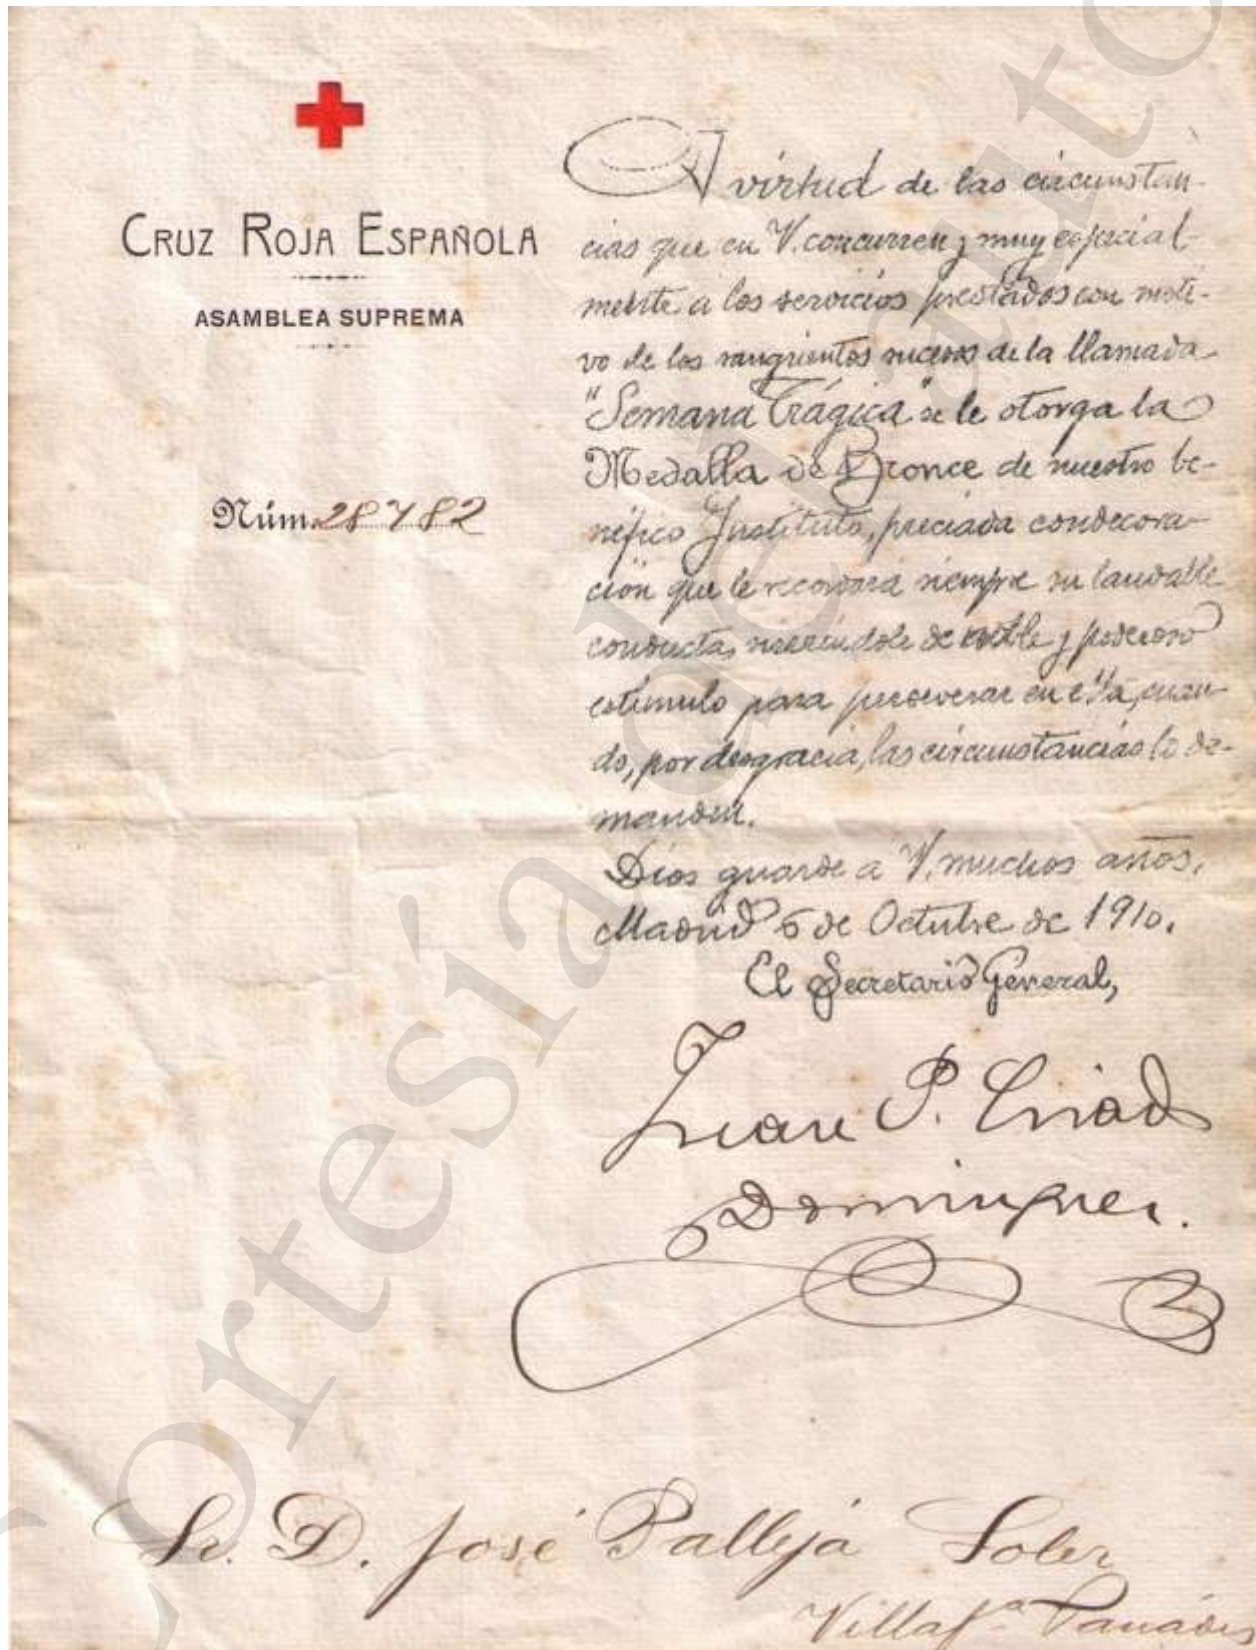 CRUZ ROJA ESPAÑOLA
ASAMBLEA SUPREMA
Núm. 28782
A virtud de las circunstan-
cias que en V. concurren y muy especial-
mente a los servicios prestados con moti-
vo de los sangrientos sucesos de la llamada
"Semana Trágica" se le otorga la
Medalla de Bronce de nuestro be-
néfico Instituto, preciada condecora-
ción que le recordará siempre su laudable
conducta, sirviéndole de noble y poderoso
estímulo para perseverar en ella, cuan-
do, por desgracia, las circunstancias lo de-
manden.
Dios guarde a V. muchos años.
Madrid 5 de Octubre de 1910.
El Secretario General,
Juan P. Criado
Dominguez.
Sr. D. José Pallejá Soler
Villafª Panadés
Cortesía del auto